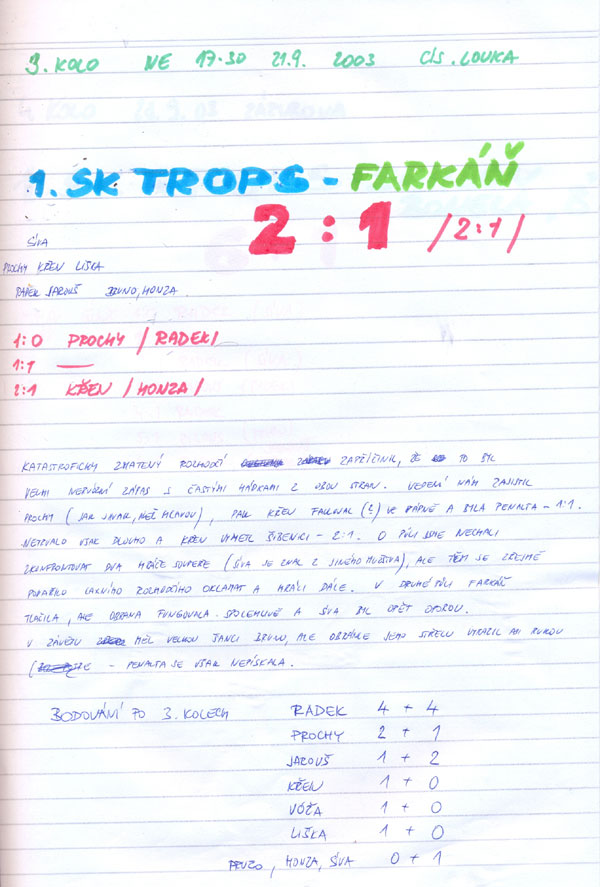 3. KOLO NE 17.30 21.9. 2003 CÍS. LOUKA
1. SK TROPS - FARKÁŇ
2 : 1 /2:1/
SÍVA
PROCHY KŘEN LIŠKA
RADEK JAROUŠ BRUNO, HONZA
1:0 PROCHY /RADEK/
1:1 ——
2:1 KŘEN /HONZA/
KATASTROFICKY ZMATENÝ ROZHODČÍ ZAPŘÍČINIL, ŽE TO BYL
VELMI NERVÓZNÍ ZÁPAS S ČASTÝMI HÁDKAMI Z OBOU STRAN. VEDENÍ NÁM ZAJISTIL
PROCHY (JAK JINAK, NEŽ HLAVOU), PAK KŘEN FAULOVAL (?) VE VÁPNĚ A BYLA PENALTA - 1:1.
NETRVALO VŠAK DLOUHO A KŘEN VYMETL ŠIBENICI - 2:1. O PŮLI JSME NECHALI
ZKONFRONTOVAT DVA HRÁČE SOUPEŘE (SÍVA JE ZNAL Z JINÉHO MUŽSTVA), ALE TĚM SE ZŘEJMĚ
PODAŘILO LAXNÍHO ROZHODČÍHO OKLAMAT A HRÁLI DÁLE. V DRUHÉ PŮLI FARKÁŇ
TLAČILA, ALE OBRANA FUNGOVALA SPOLEHLIVĚ A SÍVA BYL OPĚT OPOROU.
V ZÁVĚRU MĚL VELKOU ŠANCI BRUNO, ALE OBRÁNCE JEHO STŘELU VYRAZIL RUKOU
- PENALTA SE VŠAK NEPÍSKALA.
BODOVÁNÍ PO 3. KOLECH RADEK 4 + 4
PROCHY 2 + 1
JAROUŠ 1 + 2
KŘEN 1 + 0
VÓŽA 1 + 0
LIŠKA 1 + 0
HONZA, SÍVA 0 + 1